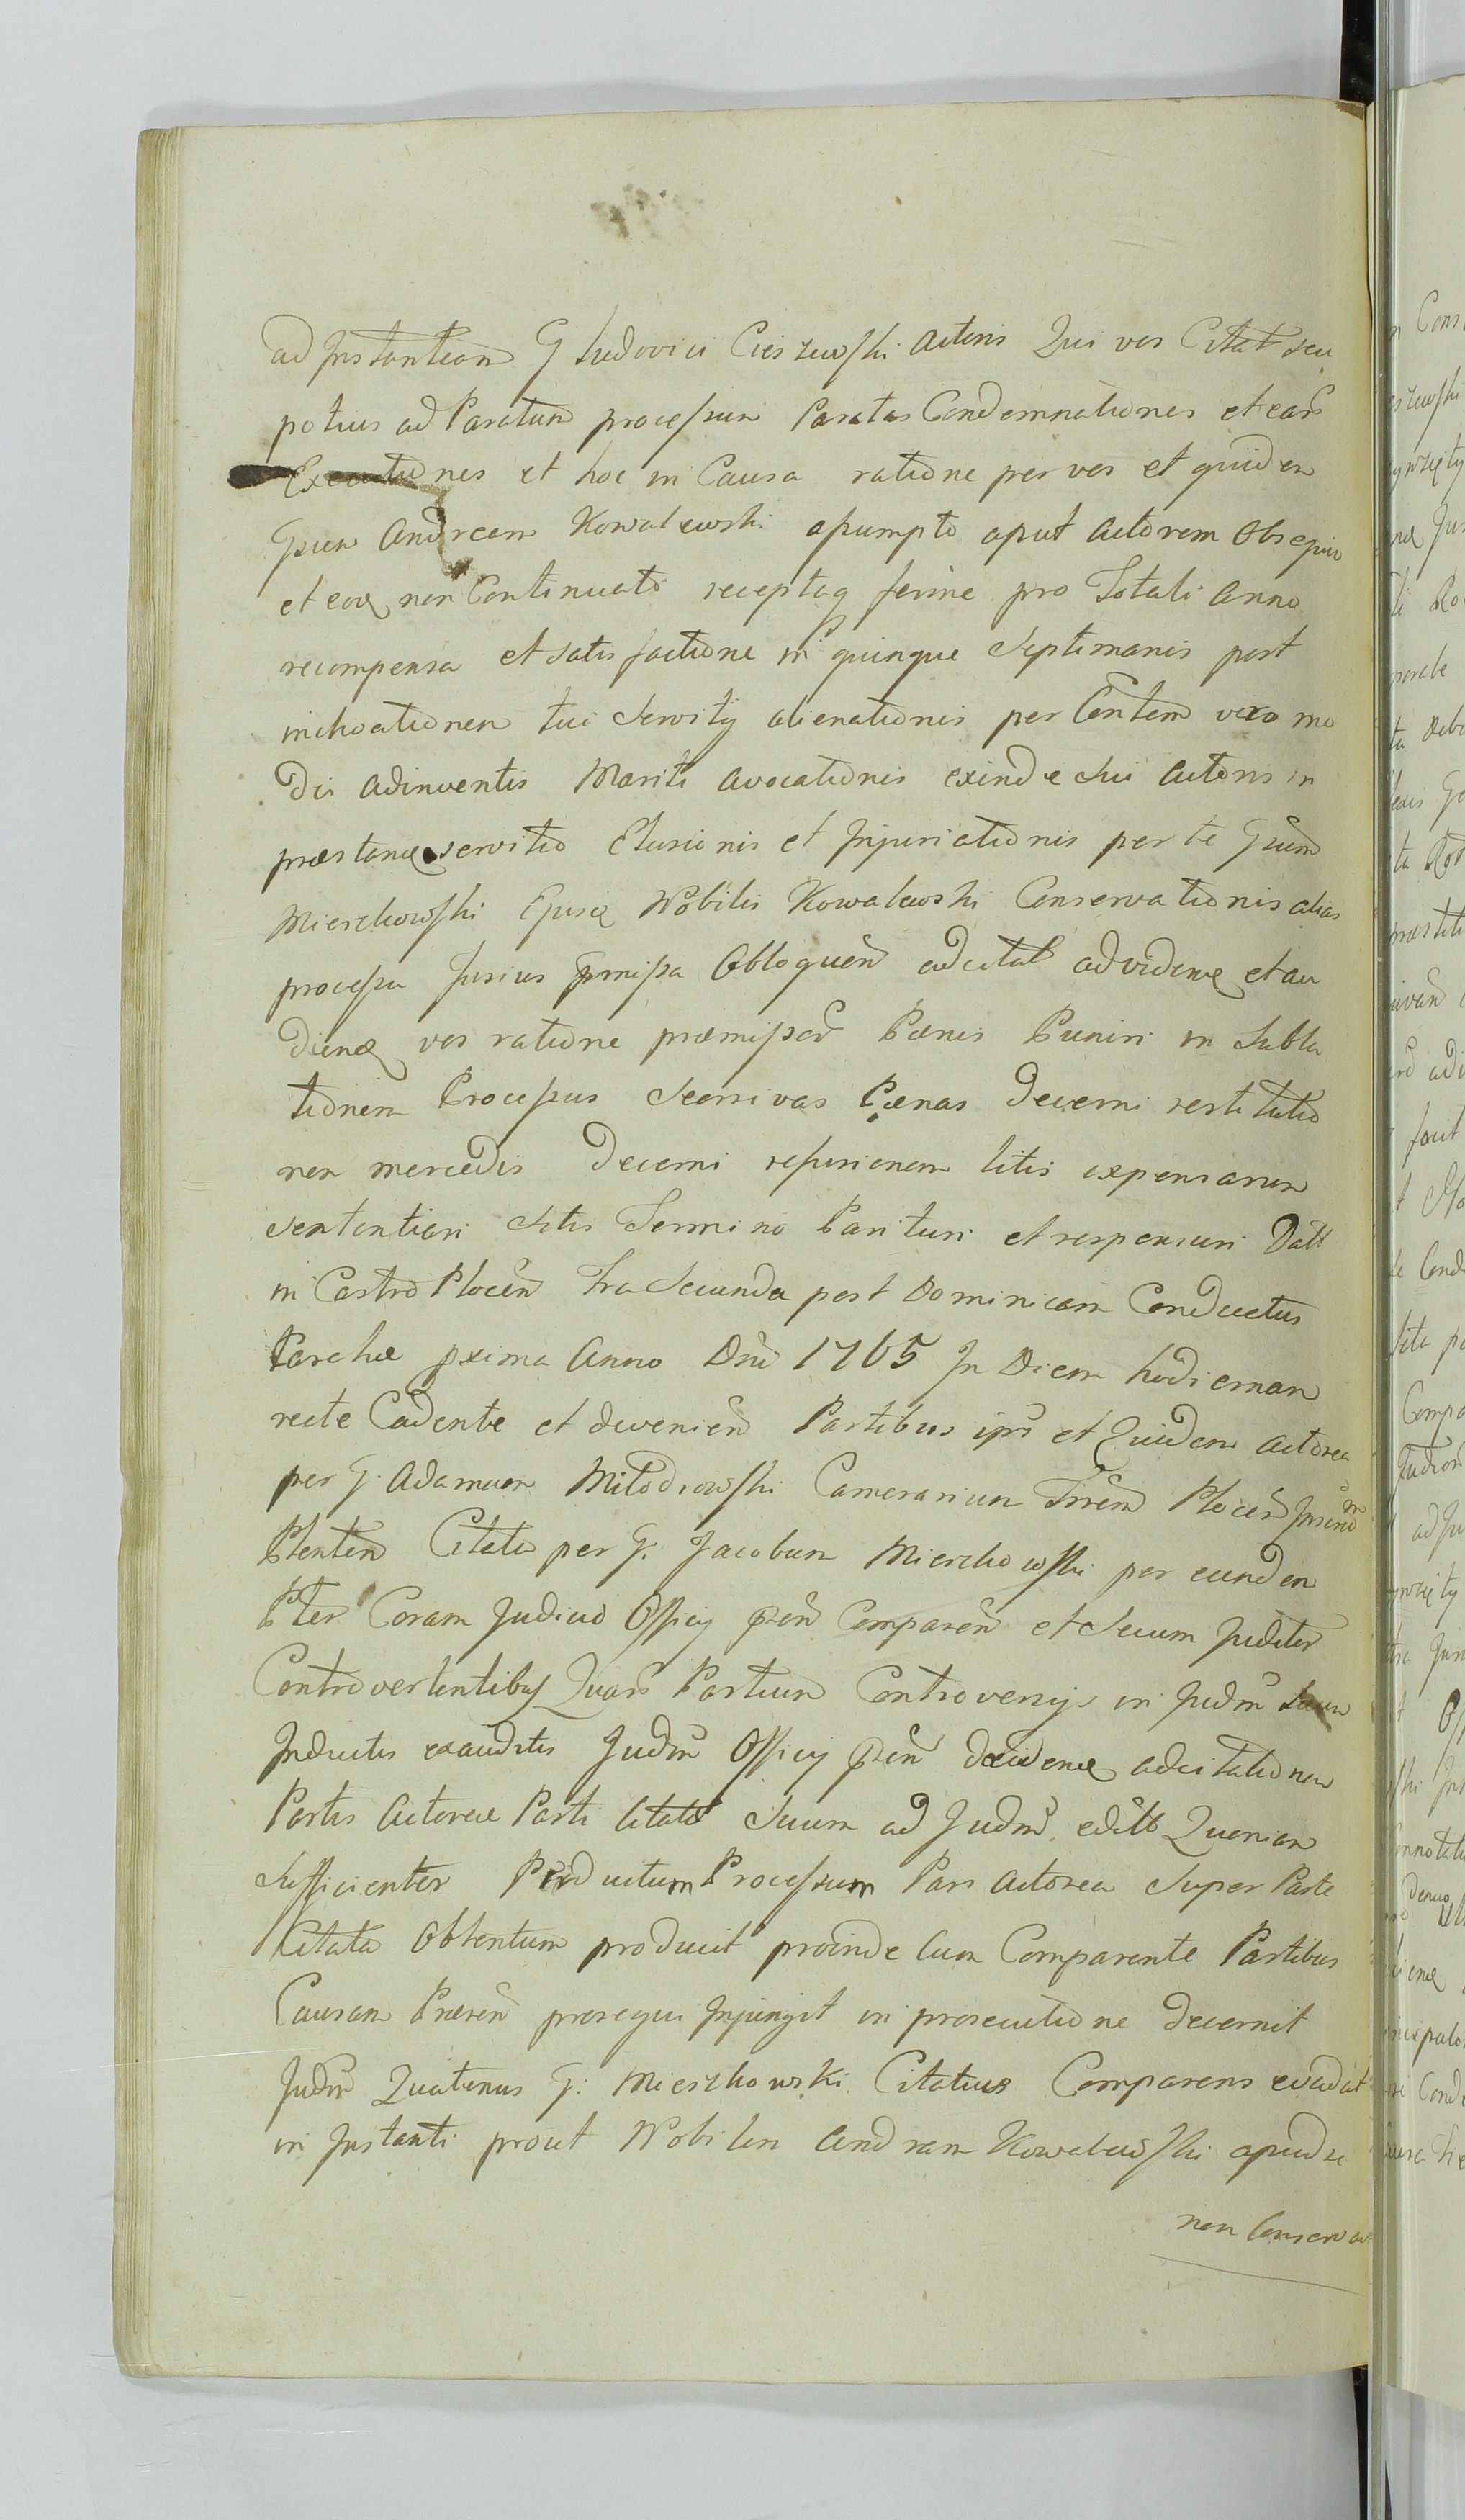 ad Instantiam G Ludovici Cieszewski Actoris Qui vos Citat seu
potius ad Paratum processum Paratas Condemnationes et ear̃
Executiones et hoc in Causa ratione per vos et quidem
Gsum Andream Kowalewski assumpto aput Actorem Obsequio
et eoq̃ non Continuato receptaq ferme pro Totali Anno
recompensa et satisfactione in quinque Septimanis post
inchoationem tui Servitÿ alienationis per Ctentem vero mo
dis adinventis Mariti avocationis exinde Sui Actoris in
præstanđ servitio Elusionis et Injuriationis per te Gsum
Mierzchowski Ejusq̃ Nobilis Kowalewski Conservationis alias
processu fusius pmissa Obloquen̄ adcitat ad videnđ et au
diend vos ratione præmissor̃ Pænis Puniri in Subla
tionem Processus Seorsivas Pænas decerni restitutio
nem mercedis decerni refusionem litis expensarum
sententiari Sitis Termino Parituri et responsuri Datt
in Castro Plocen̄ Fra Secunda post Dominicam Conductus
Paschæ pxima Anno Dni 1765 In Diem hodiernam
recte Cadente et devenien̄ Partibus ips̃ et Quidem Actorea
per G. Adamum Miłodrowski Camerarium Trrem Plocen̄
Plentem Citata per G. Jacobum Mierzchowski per eundem
Pter Coram Judicio Officÿ pñti Comparen̄ et Secum Juditer
Controvertentibus Quar̃ Partium Controversÿs in Judm̃ suum
Inductis exauditis Judm̃ Officÿ pñs decidendo adcitationem
Partis Actoreæ Parti Citatæ Suum ad Judm̃ editt Quoniam
Sufficienter Productum Processum Pars Actorea Super Parte
Citata Obtentum producit proinde Cum Comparente Partibus
Causam Præsen̄ prosequi Injungit in prosecutione decernit
Judm̃ Quatenus G: Mierzchowski Citatus Comparens evadat
in Instanti prout Nobilem Andream Kowalewski apud se
non Conserva